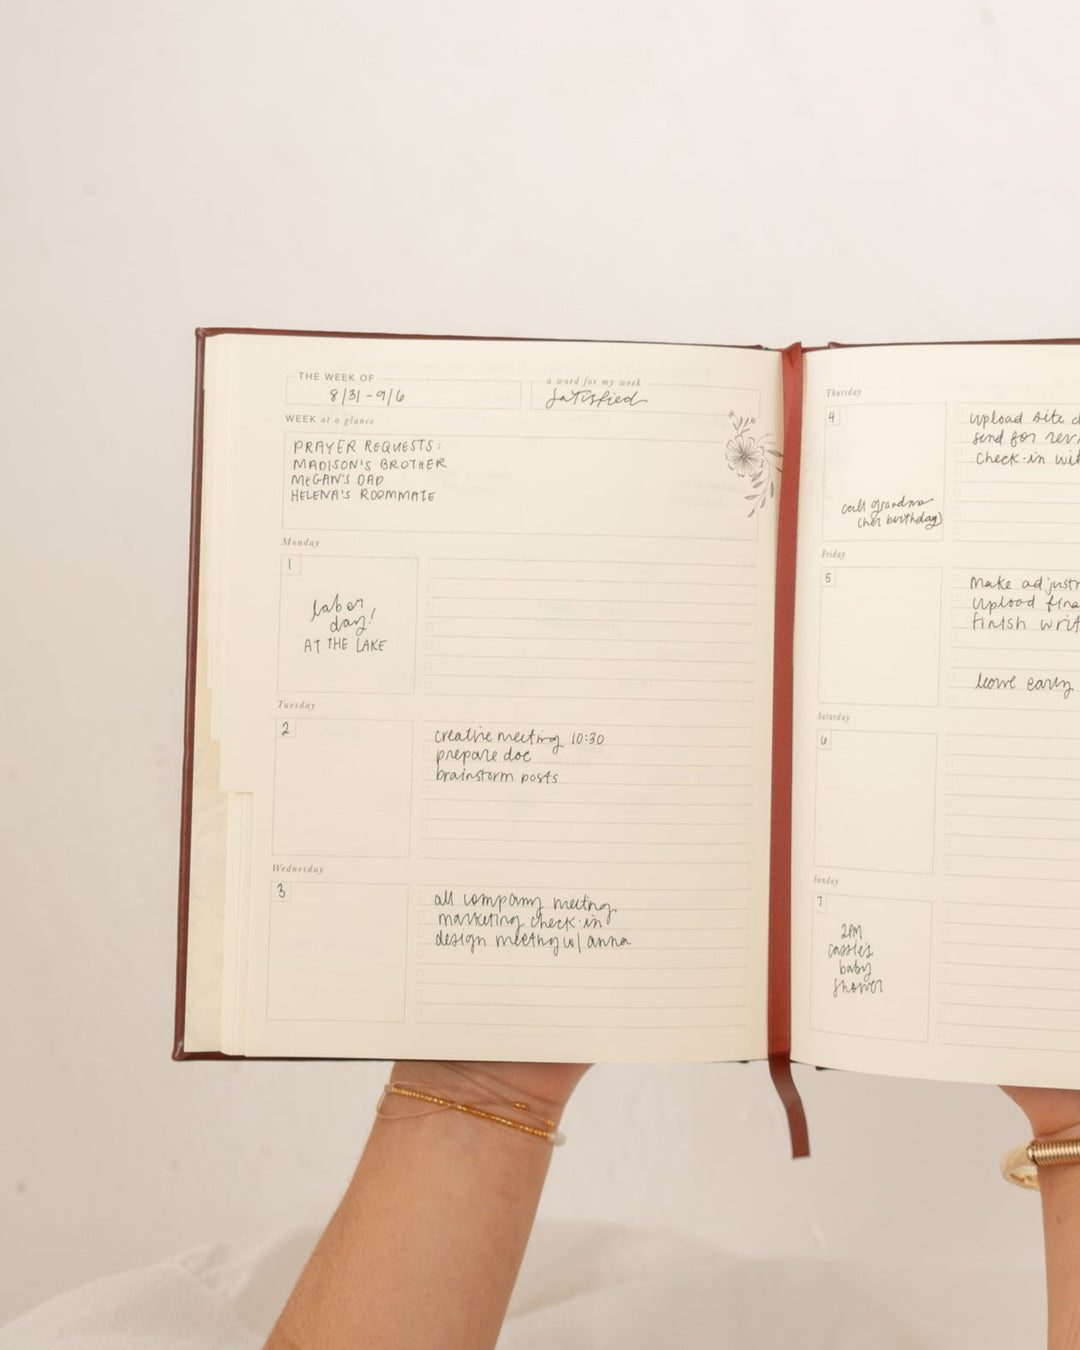 THE WEEK OF
8/31 - 9/6
a word for my week
satisfied
WEEK at a glance
PRAYER REQUESTS:
MADISON'S BROTHER
MEGAN'S DAD
HELENA'S ROOMMATE
Monday
1
labor
day!
AT THE LAKE
Tuesday
2
creative meeting 10:30
prepare doc
brainstorm posts
Wednesday
3
all company meeting
marketing check-in
design meeting w/ anna
Thursday
4
call grandma
(her birthday)
upload site
send for
check-in
Friday
5
make
upload
finish
leave early
Saturday
6
Sunday
7
2PM
cassie's
baby
shower